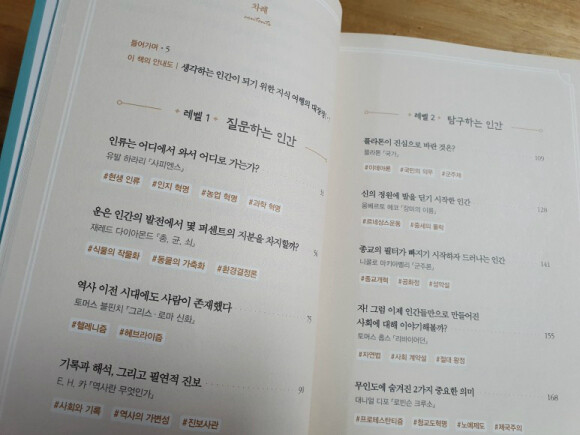 차례
들어가며 • 5
이 책의 안내도 | 생각하는 인간이 되기 위한 지식 여행의
레벨 1 질문하는 인간
인류는 어디에서 와서 어디로 가는가?
유발 하라리 『사피엔스』
#현생 인류 #인지 혁명 #농업 혁명 #과학 혁명
운은 인간의 발전에서 몇 퍼센트의 지분을 차지할까?
재레드 다이아몬드 『총, 균, 쇠』
#식물의 작물화 #동물의 가축화 #환경결정론
역사 이전 시대에도 사람이 존재했다
토머스 불핀치 『그리스·로마 신화』
#헬레니즘 #헤브라이즘
기록과 해석, 그리고 필연적 진보
E. H. 카 『역사란 무엇인가』
#사회와 기록 #역사의 가변성 #진보사관
레벨 2 탐구하는 인간
플라톤이 진심으로 바란 것은?
플라톤 『국가』
#이데아론 #국민의 의무 #군주제
신의 정원에 발을 딛기 시작한 인간 128
움베르토 에코 『장미의 이름』
#르네상스운동 #중세의 철학
종교의 필터가 빠지기 시작하자 드러나는 인간 141
니콜로 마키아벨리 『군주론』
#종교개혁 #공화정
자! 그럼 이제 인간들만으로 만들어진
사회에 대해 이야기해볼까? 155
토머스 홉스 『리바이어던』
#자연법 #사회 계약설 #절대 왕정
무인도에 숨겨진 2가지 중요한 의미 168
대니얼 디포 『로빈슨 크루소』
#프로테스탄티즘 #청교도혁명 #노예제도 #제국주의